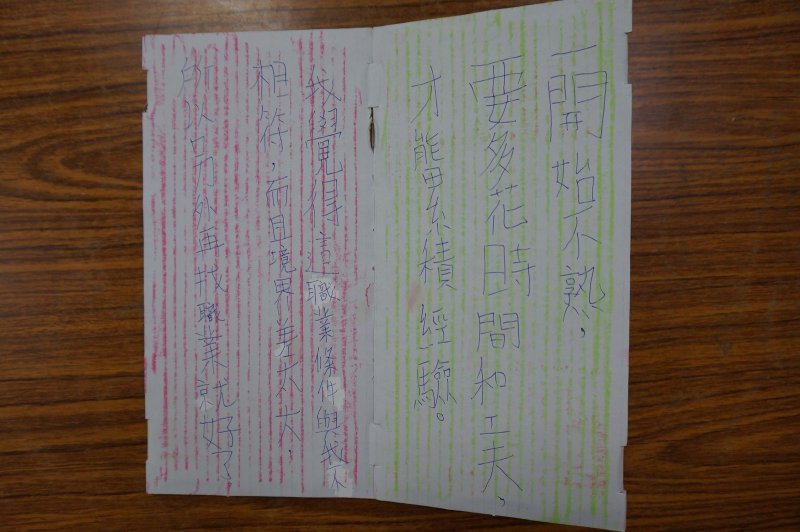 一開始不熟，
要多花時間和工夫，
才能累積經驗。
我覺得這職業條件與我不
相符，而且境界差太大，
所以另外再找職業就好了